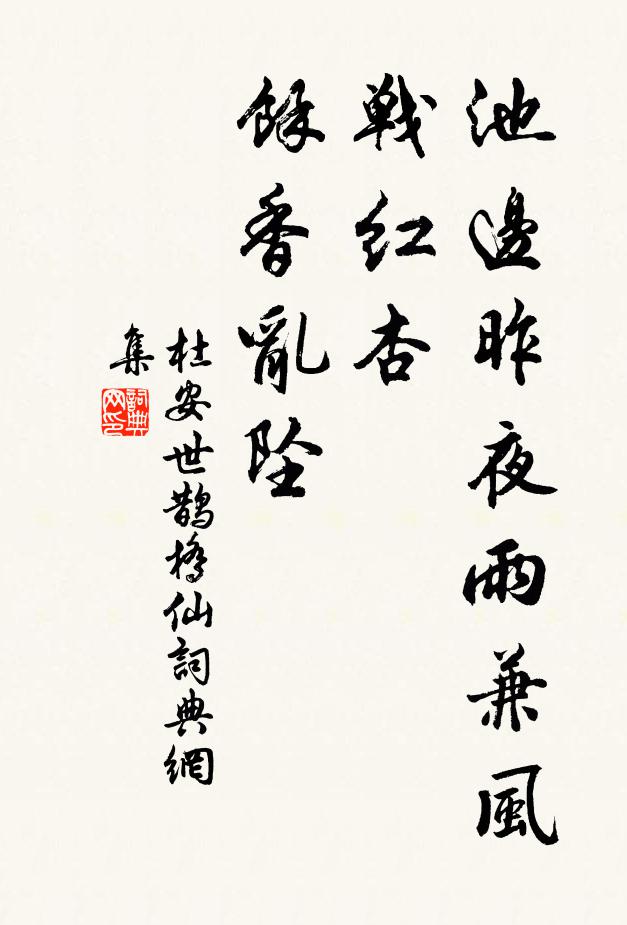 池邊昨夜雨兼風
戰紅杏
餘香亂墜
杜安世鵲橋仙詞典網
集
詞典
网印